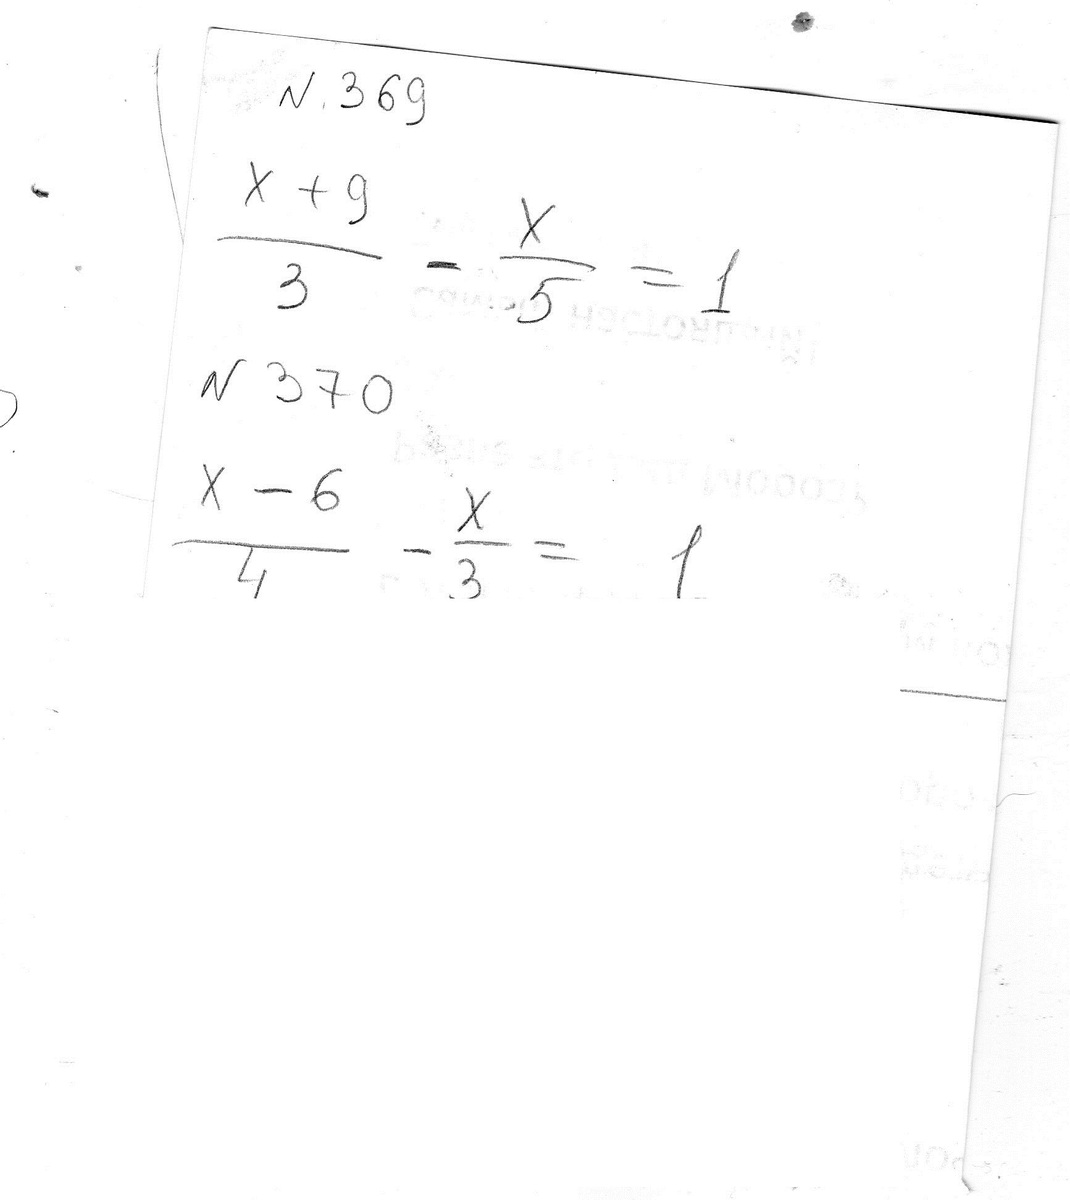 N. 369
x + 9
3
- x
5
= 1
N 370
x - 6
4
- x
3
= 1